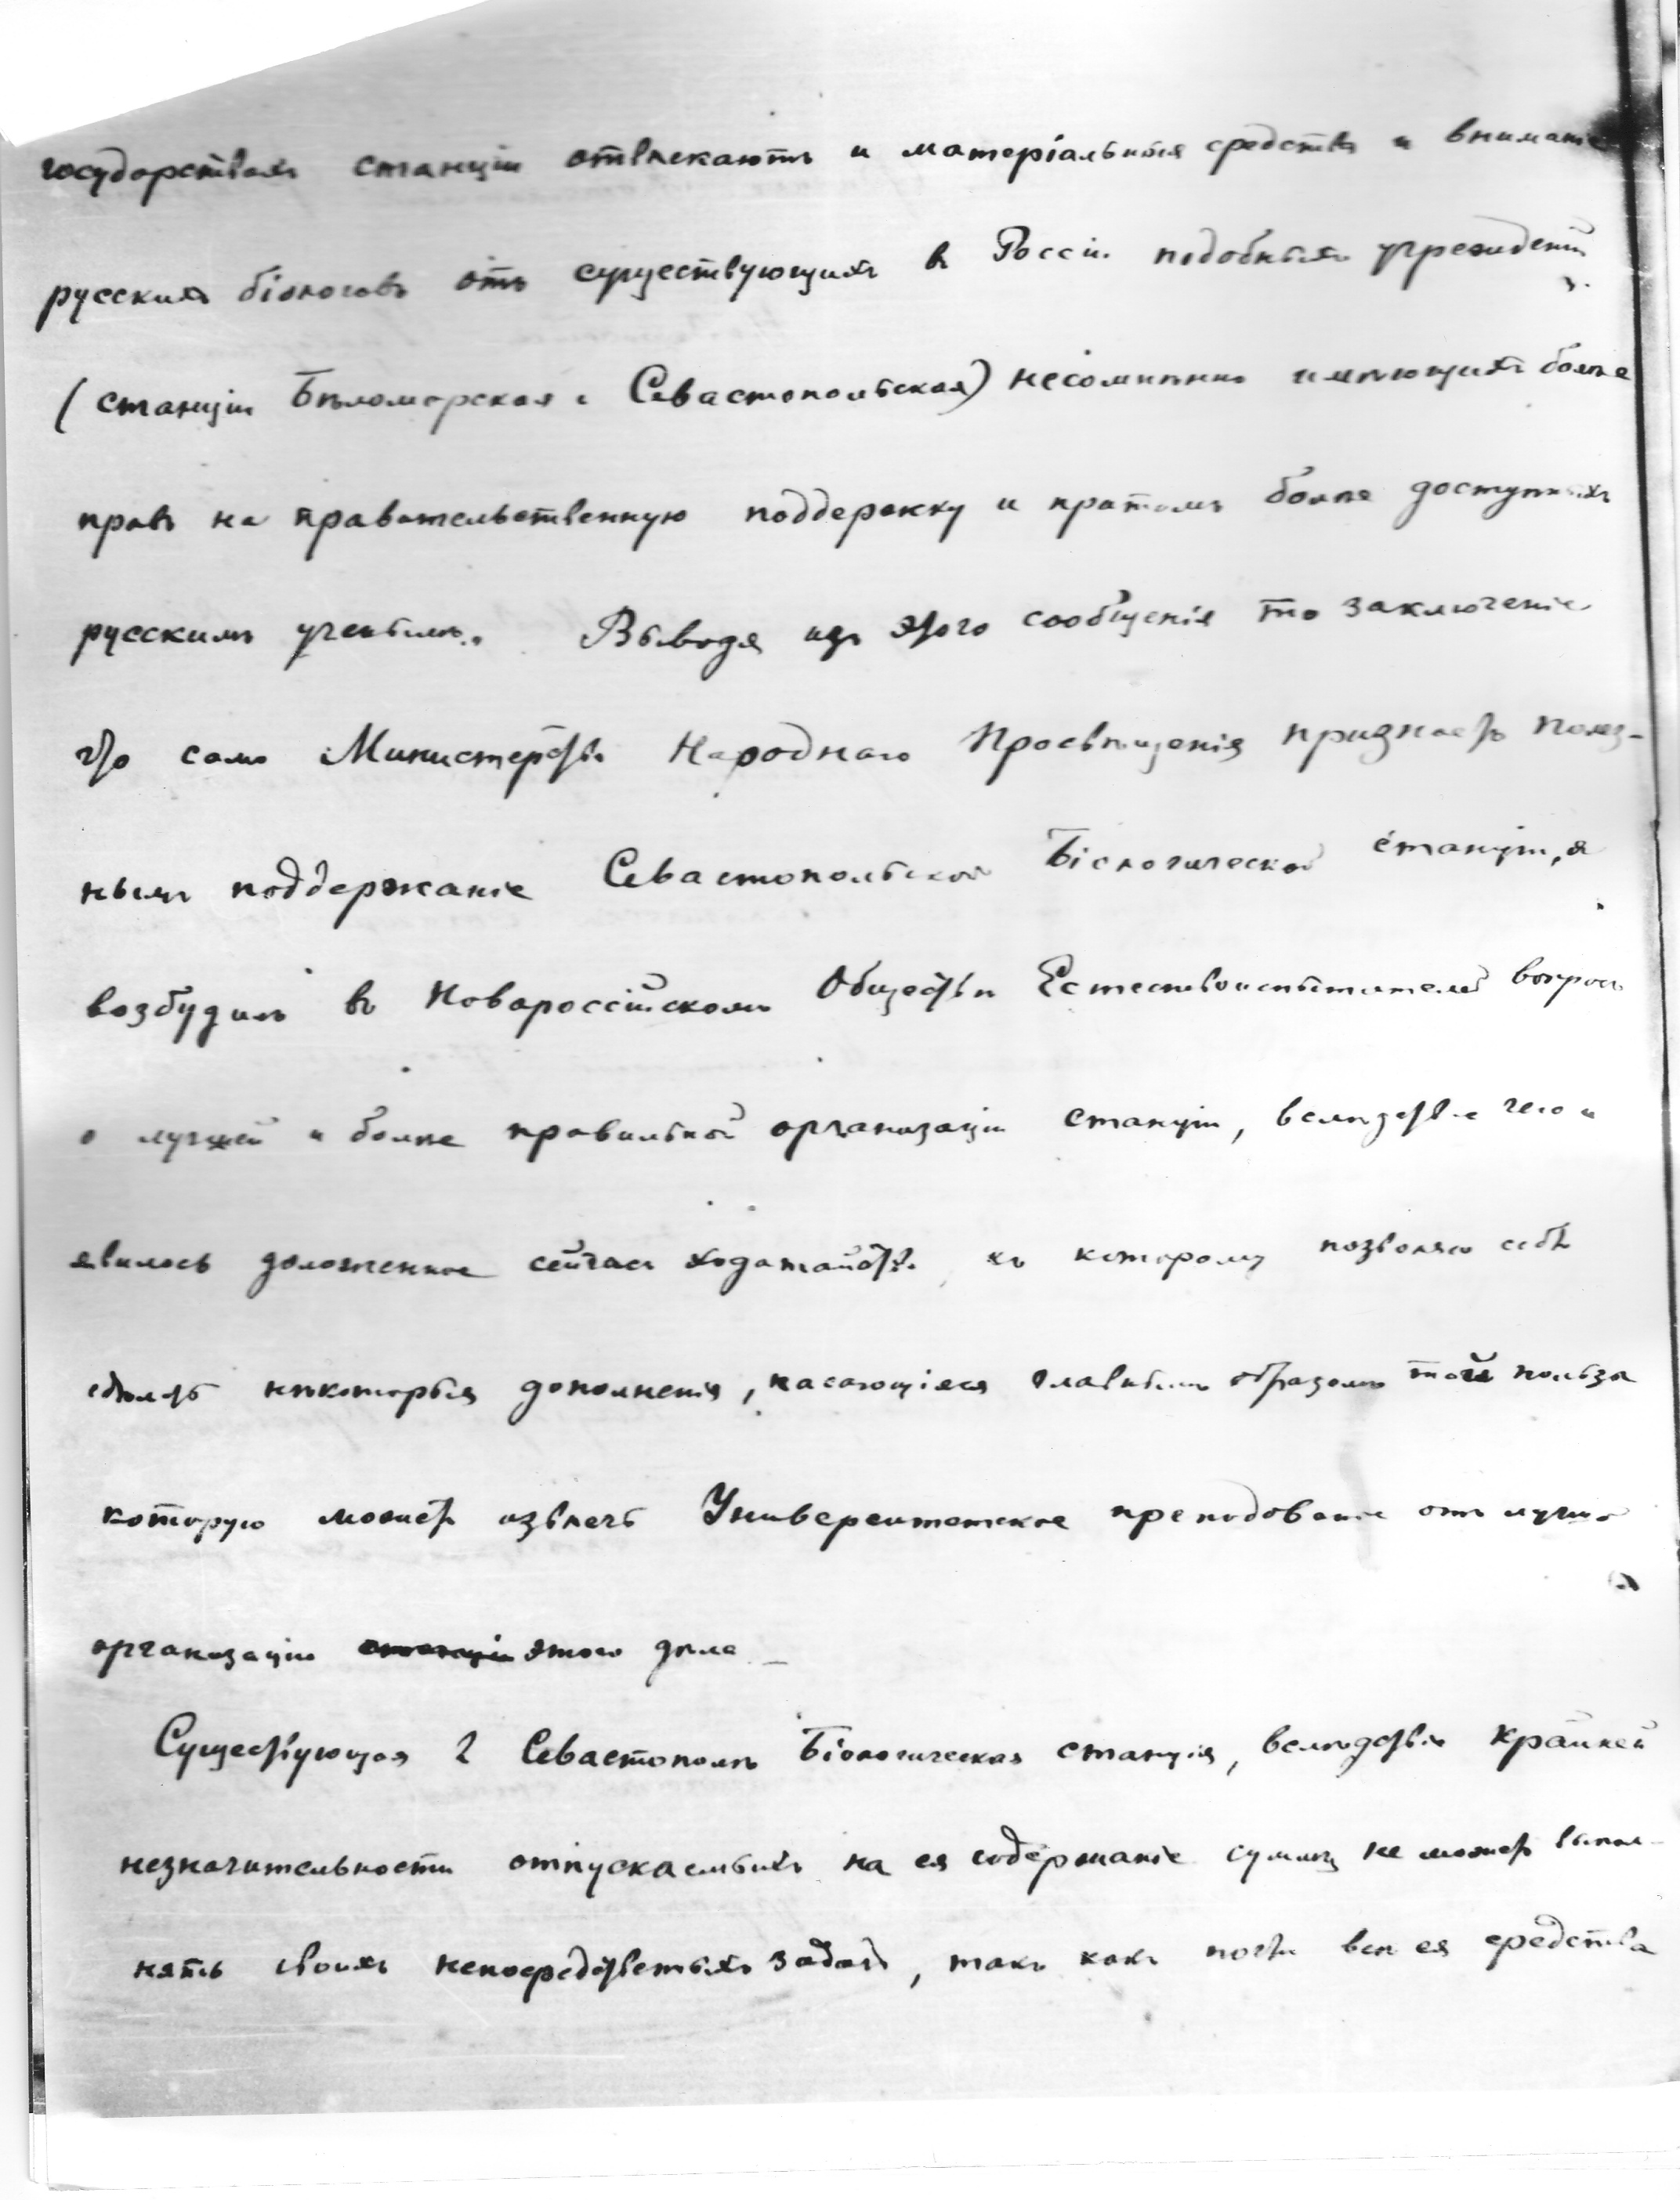 государствахъ станціи отвлекаютъ и матеріальныя средства и вниманіе
русскихъ біологовъ отъ существующихъ въ Россіи подобныхъ учрежденій
(станціи Бѣломорская и Севастопольская) несомнѣнно имѣющихъ болѣе
правъ на правительственную поддержку и притомъ болѣе доступныхъ
русскимъ ученымъ. Выводя изъ этого сообщенія то заключеніе
что само Министерство Народнаго Просвѣщенія признаетъ полез-
нымъ поддержаніе Севастопольской Біологической станціи, я
возбудилъ въ Новороссійскомъ Обществѣ Естествоиспытателей вопросъ
о лучшей и болѣе правильной организаціи станціи, вслѣдствіе чего и
явилось доложенное сейчасъ ходатайство, къ которому позволяю себѣ
сдѣлать нѣкоторыя дополненія, касающіяся главнымъ образомъ той пользы
которую можетъ извлечь Университетское преподованіе отъ лучшей
организаціи этого дѣла
Существующая въ Севастополѣ Біологическая станція, вслѣдствіе крайней
незначительности отпускаемыхъ на ея содержаніе суммъ не можетъ выпол-
нять своихъ непосредственныхъ задачъ, такъ какъ почти всѣ ея средства